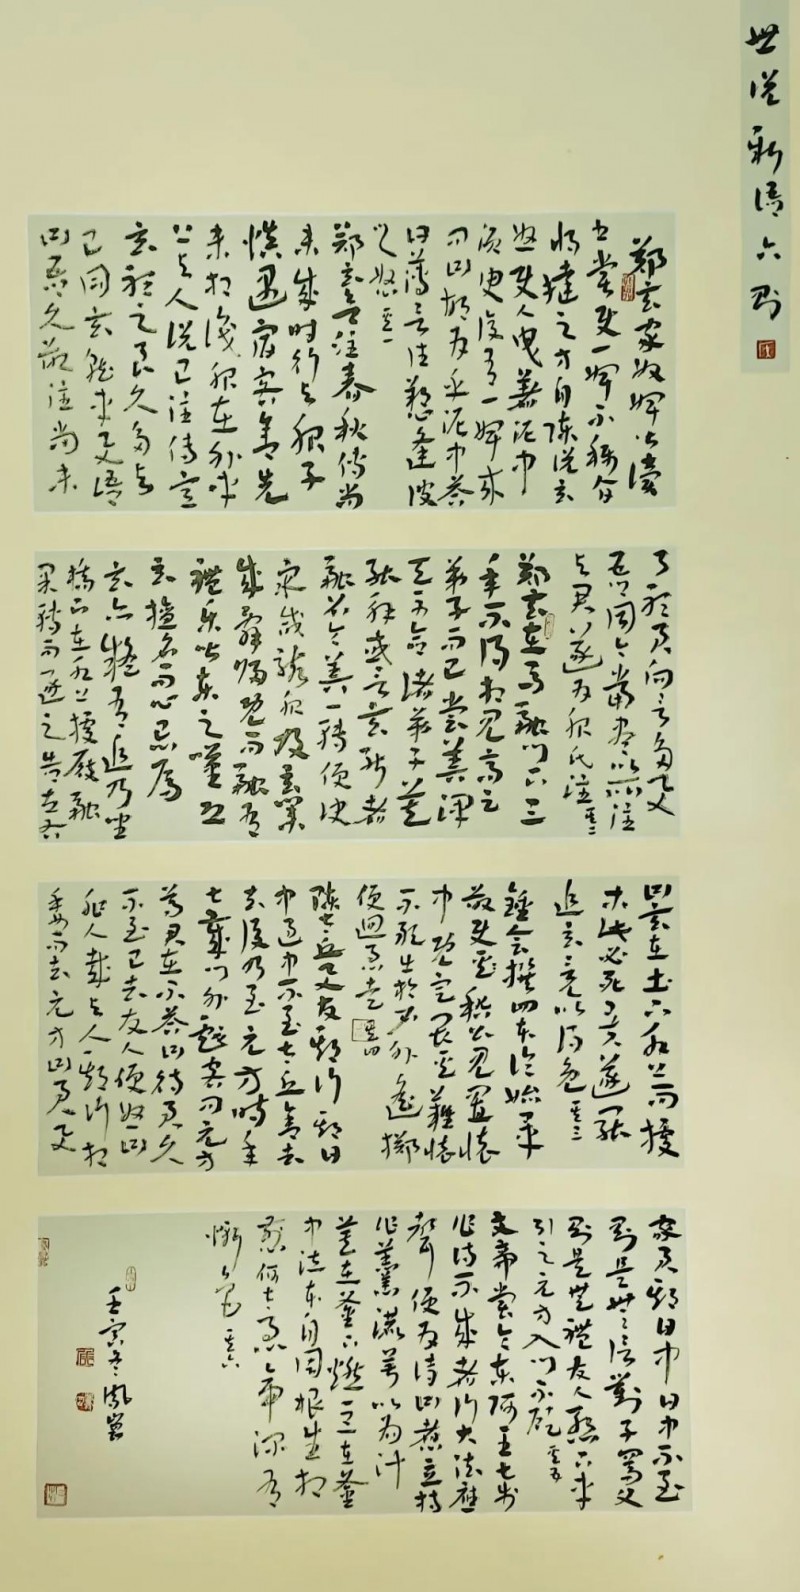 世說新語六則
鄭玄家奴婢皆讀
書嘗使一婢不稱旨
將撻之方自陳說玄
怒使人曳著泥中
須臾復有一婢來
問曰胡為乎泥中答
曰薄言往愬逢彼
之怒其一
鄭玄欲注春秋傳尚
未成時行與服子
慎遇宿客舍先
未相識服在外車
上與人說己注傳意
玄聽之良久多與
己同玄就車與語
曰吾久欲注尚未
了聽君向言多與
吾同今當盡以所注
與君遂為服氏注其二
鄭玄在馬融門下三
年不得相見高足
弟子而已嘗算渾
天不合諸弟子莫
能解或言玄能者
融召令算一轉便決
眾咸駭服及玄業
成辭歸既而融有
禮樂皆東之嘆恐
玄擅名而心忌焉
玄亦疑有追乃坐
橋下在水上據屐融
果轉而逐之告左右
曰玄在土下水上而據
木此必死矣遂罷
追玄竟以得免其三
鍾會撰四本論始畢
欲使嵇公見置懷
中既定畏其難懷
不敢出於戶外遙擲
便迴急走其四
陳太丘與友期行期日
中過中不至太丘舍去
去後乃至元方時年
七歲門外戲客問元方
尊君在不答曰待君久
不至已去友人便怒曰
非人哉與人期行相
委而去元方曰君與
家君期日中日中不至
則是無信對子罵父
則是無禮友人慚下車
引之元方入門不顧其五
文帝嘗令東阿王七步
作詩不成者行大法應
聲便為詩曰煮豆持
作羹漉菽以為汁
萁在釜下燃豆在釜
中泣本自同根生相
煎何太急帝深有
慚色其六
壬寅冬